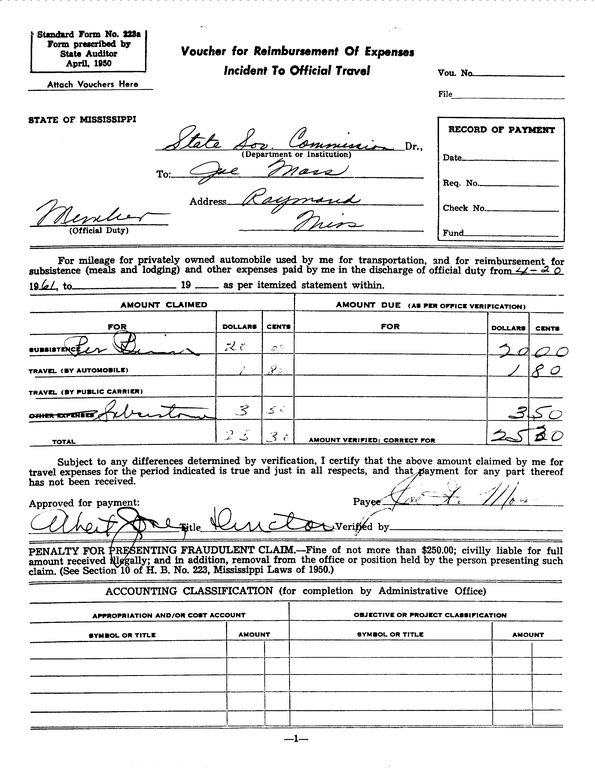 Standard Form No. 223a
Form prescribed by
State Auditor
April, 1950
Attach Vouchers Here
Voucher for Reimbursement Of Expenses
Incident To Official Travel
Vou. No.
File
STATE OF MISSISSIPPI
State Sov. Commission Dr.,
(Department or Institution)
To: Joe Moss
Address Raymond
Miss
Member
(Official Duty)
RECORD OF PAYMENT
Date
Req. No.
Check No.
Fund
For mileage for privately owned automobile used by me for transportation, and for reimbursement for
subsistence (meals and lodging) and other expenses paid by me in the discharge of official duty from 4-20
1961, to 19 as per itemized statement within.
AMOUNT CLAIMED AMOUNT DUE (AS PER OFFICE VERIFICATION)
FOR DOLLARS CENTS FOR DOLLARS CENTS
SUBSISTENCE Per Diem 20 00 20 00
TRAVEL (BY AUTOMOBILE) 1 80 1 80
TRAVEL (BY PUBLIC CARRIER)
OTHER EXPENSES Subsistence 3 50 3 50
TOTAL 25 30 AMOUNT VERIFIED: CORRECT FOR 25 30
Subject to any differences determined by verification, I certify that the above amount claimed by me for
travel expenses for the period indicated is true and just in all respects, and that payment for any part thereof
has not been received.
Approved for payment: Payee
Albert Jones Title Director Verified by
PENALTY FOR PRESENTING FRAUDULENT CLAIM.—Fine of not more than $250.00; civilly liable for full
amount received illegally; and in addition, removal from the office or position held by the person presenting such
claim. (See Section 10 of H. B. No. 223, Mississippi Laws of 1950.)
ACCOUNTING CLASSIFICATION (for completion by Administrative Office)
APPROPRIATION AND/OR COST ACCOUNT OBJECTIVE OR PROJECT CLASSIFICATION
SYMBOL OR TITLE AMOUNT SYMBOL OR TITLE AMOUNT
—1—